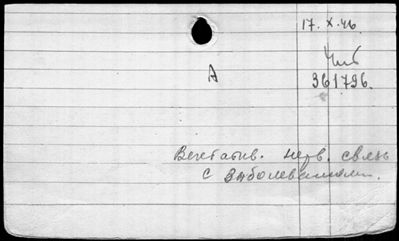 17. X. 46.
Чит
А
361796.
Вегетатив. нерв. связь
с заболеваниями.